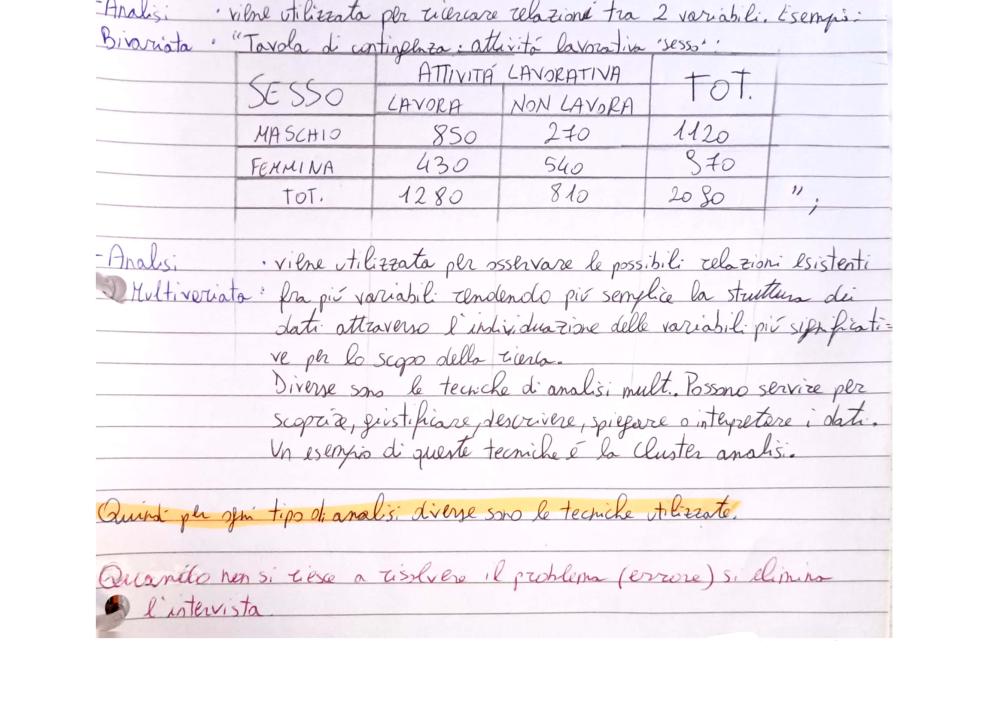 -Analisi · viene utilizzata per ricercare relazioni tra 2 variabili. Esempio:
Bivariata · "Tavola di contingenza: attività lavorativa "sesso":
SESSO ATTIVITÁ LAVORATIVA TOT.
LAVORA NON LAVORA
MASCHIO 850 270 1120
FEMMINA 430 540 970
TOT. 1280 810 2090 ";
-Analisi · viene utilizzata per osservare le possibili relazioni esistenti
Multivariata: fra piú variabili rendendo piú semplice la struttura dei
dati attraverso l'individuazione delle variabili piú significati=
ve per lo scopo della ricerca.
Diverse sono le tecniche di analisi mult.. Possono servire per
scoprire, giustificare, descrivere, spiegare o interpretare i dati.
Un esempio di queste tecniche é la Cluster analisi.
Quindi per ogni tipo di analisi diverse sono le tecniche utilizzate.
Quando non si riesce a risolvere il problema (errore) si elimina
l'intervista